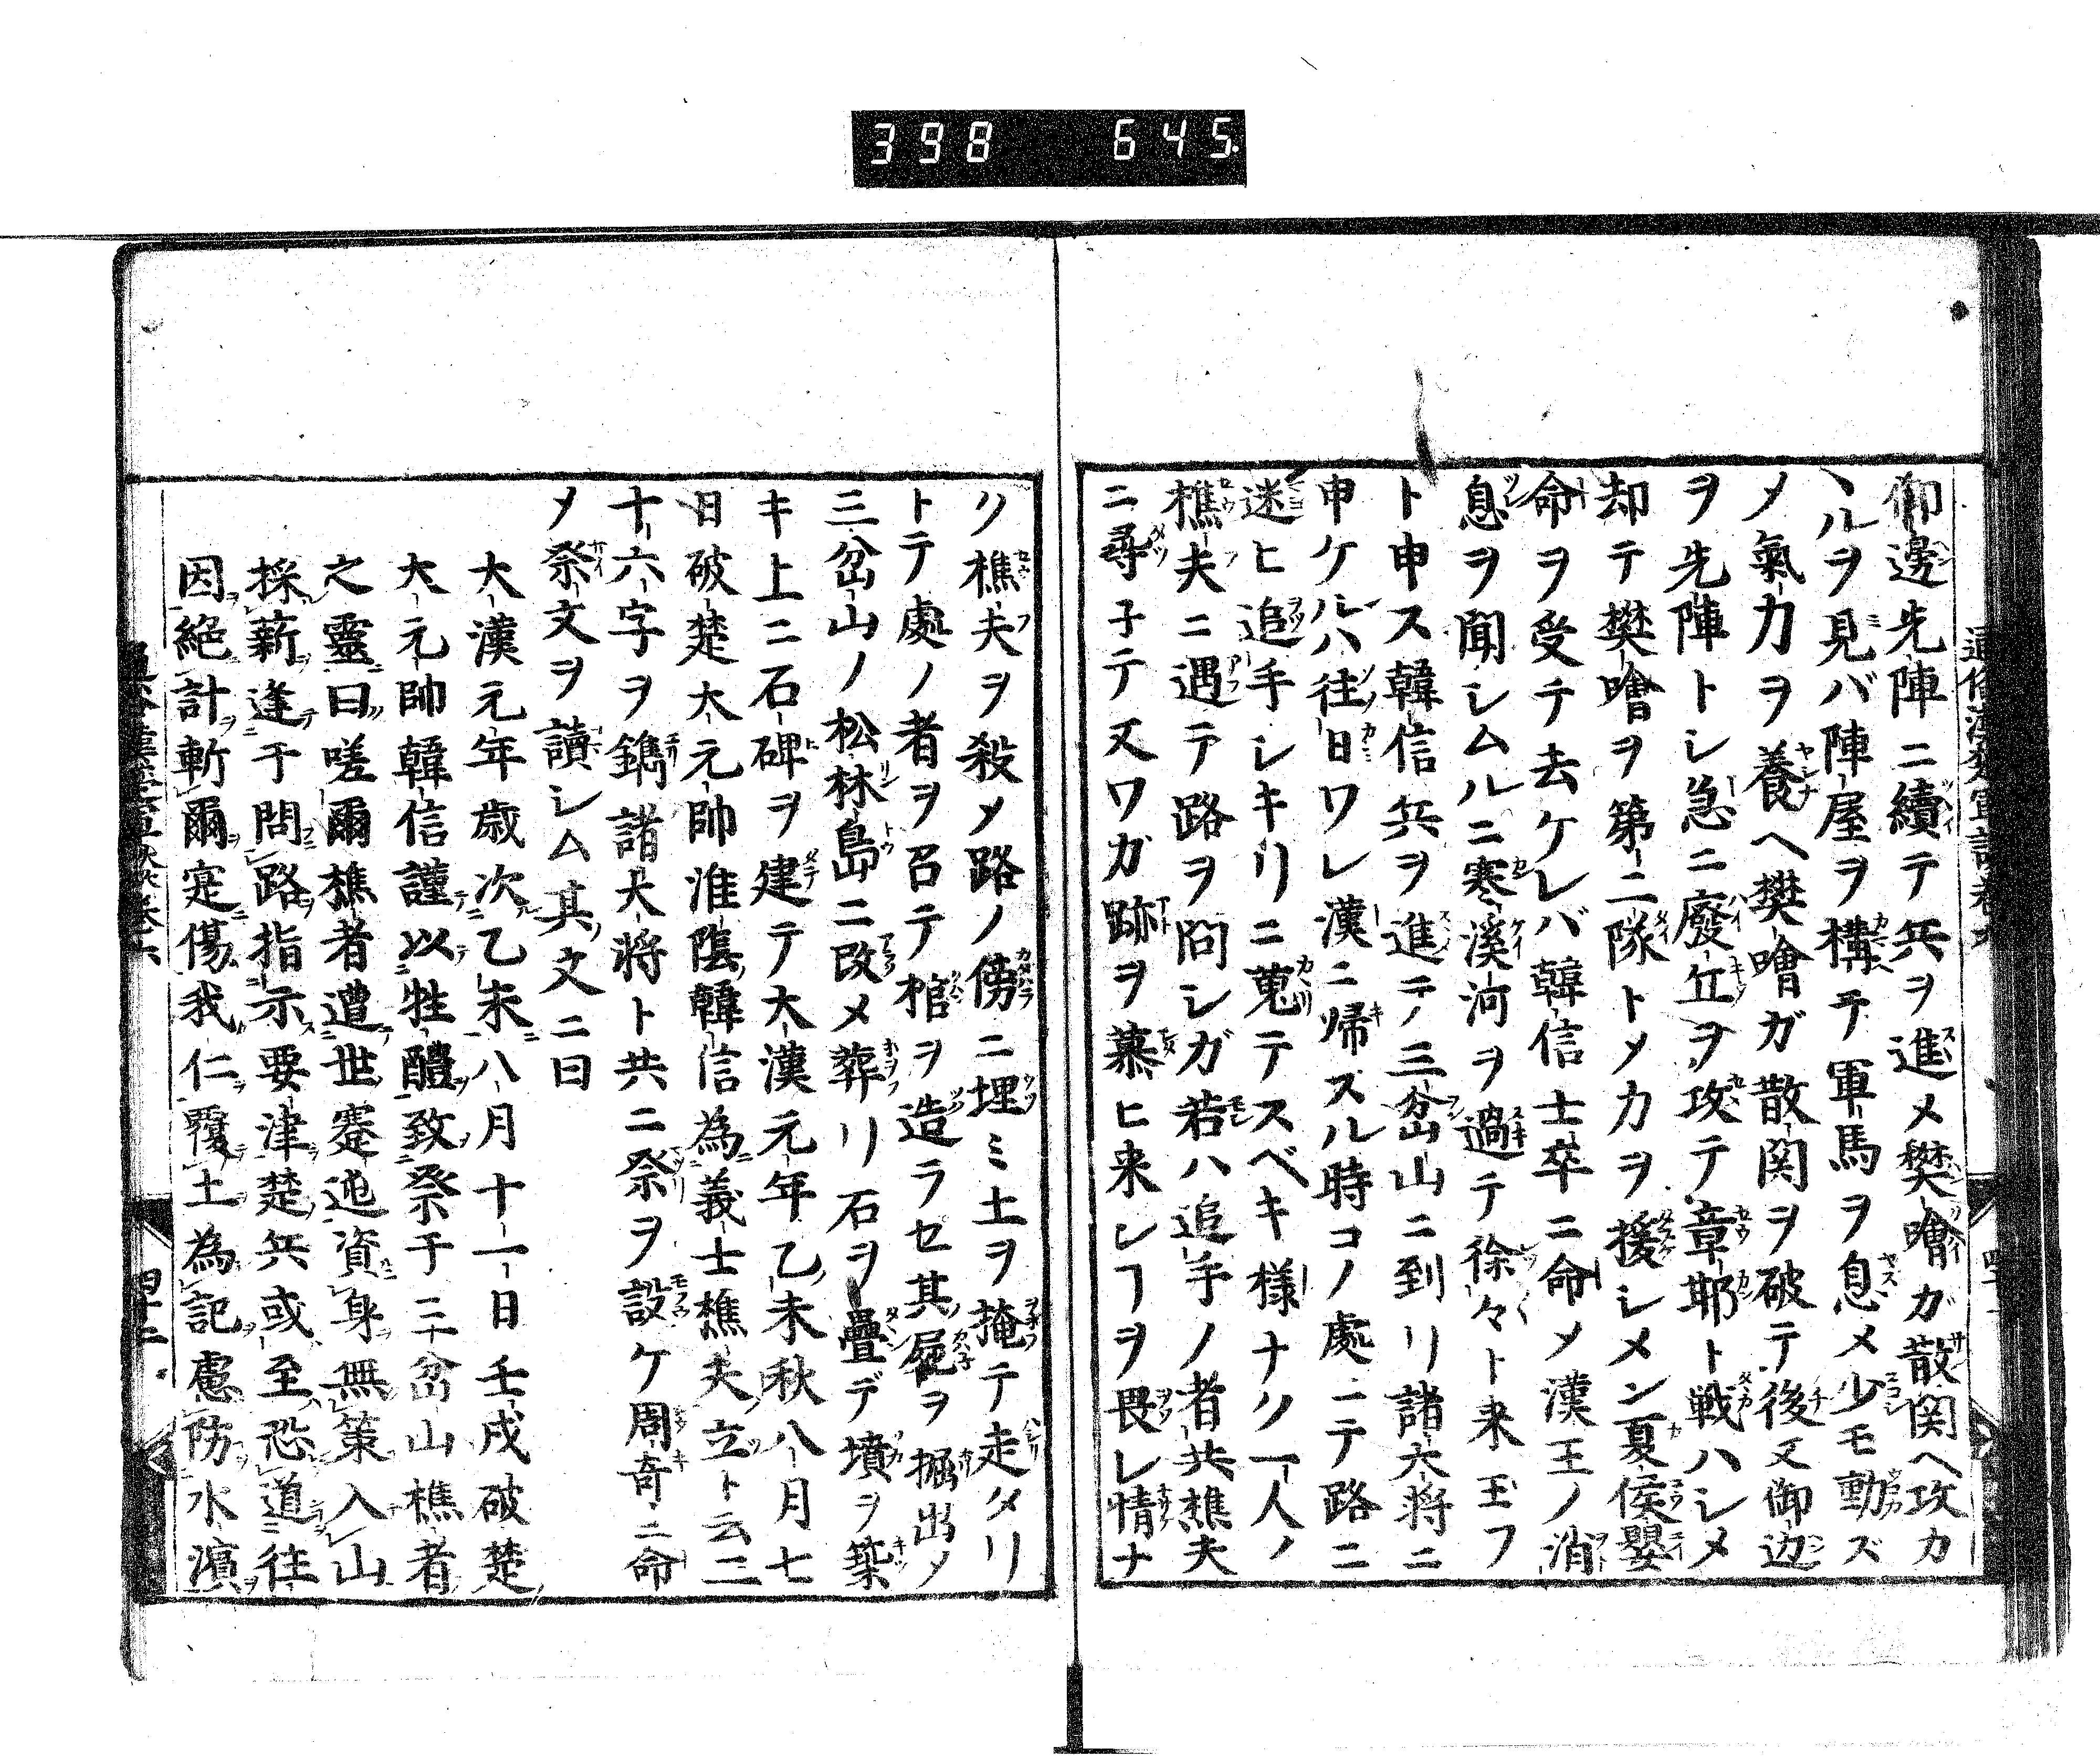 398 645
御邊先陣ニ續テ兵ヲ進メ樊噲ガ散関ヘ攻カ
ヽルヲ見バ陣屋ヲ構テ軍馬ヲ息メ少モ動ズ
ノ氣力ヲ養ヘ樊噲ガ散関ヲ破テ後又御辺
ヲ先陣トシ急ニ廢丘ヲ攻テ章耶ト戦ハシメ
却テ樊噲ヲ第二隊トメカヲ援シメン夏侯嬰
命ヲ受テ去ケレバ韓信士卒ニ命メ漢王ノ消
息ヲ聞シムルニ寒溪河ヲ過テ徐々ト来玉フ
ト申ス韓信兵ヲ進テ三岔山ニ到リ諸大将ニ
申ケルハ往日ワレ漢ニ帰スル時コノ處ニテ路ニ
迷ヒ追手シキリニ蒐テスベキ様ナク一人ノ
樵夫ニ遇テ路ヲ问シガ若ハ追手ノ者共樵夫
ニ尋子テ又ワガ跡ヲ慕ヒ来レヿヲ畏レ情ナ
ク樵夫ヲ殺メ路ノ傍ニ埋ミ土ヲ掩テ走タリ
トテ處ノ者ヲ召テ棺ヲ造ラセ其屍ヲ掘出メ
三岔山ノ松林島ニ改メ葬リ石ヲ疊デ墳ヲ築
キ上ニ石碑ヲ建テ大漢元年乙未秋八月七
日破楚大元帥淮陰韓信為義士樵夫立ト云二
十六字ヲ鐫諸大将ト共ニ祭ヲ設ケ周奇ニ命
メ祭文ヲ讀シム其文ニ曰
大漢元年歳次乙未八月十一日壬戌破楚
大元帥韓信謹以牲醴致祭于三岔山樵者
之靈曰嗟爾樵者遭世蹇迍資身無策入山
採薪逢于問路指示要津楚兵或至恐道往
因絶計斬爾寔傷我仁覆土為記慮防水濱
四十二